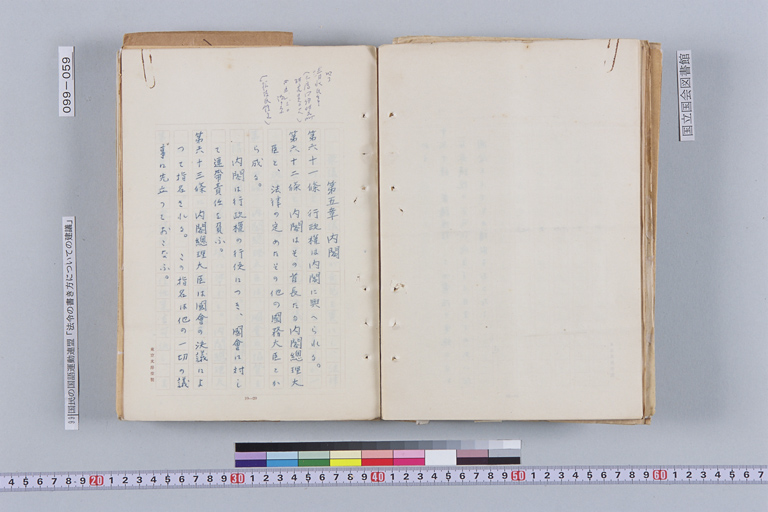 国立国会図書館
第五章 内閣
第六十一條 行政權は内閣に興へられる。
第六十二條 内閣はその首長たる内閣總理大
臣と、法律の定めたその他の國務大臣とか
ら成る。
内閣は行政權の行使につき、國會に対し
て連帶責任を負ふ。
第六十三條 内閣總理大臣は國會の決議によ
つて指名される。この指名は他の一切の議
事に先立つておこなふ。
099-059
国民の国語運動連盟「法令の書き方についての建議」
4 5 6 7 8 9 20 1 2 3 4 5 6 7 8 9 30 1 2 3 4 5 6 7 8 9 40 1 2 3 4 5 6 7 8 9 50 1 2 3 4 5 6 7 8 9 60 1 2 3 4 5 6 7